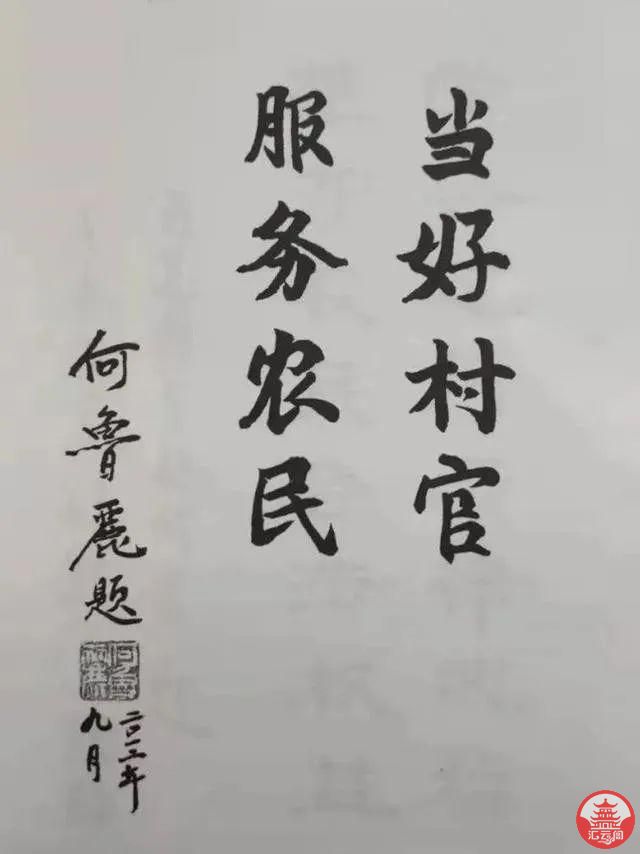 当好村官
服务农民
何鲁丽题
二〇一二年
九月
汇云阁